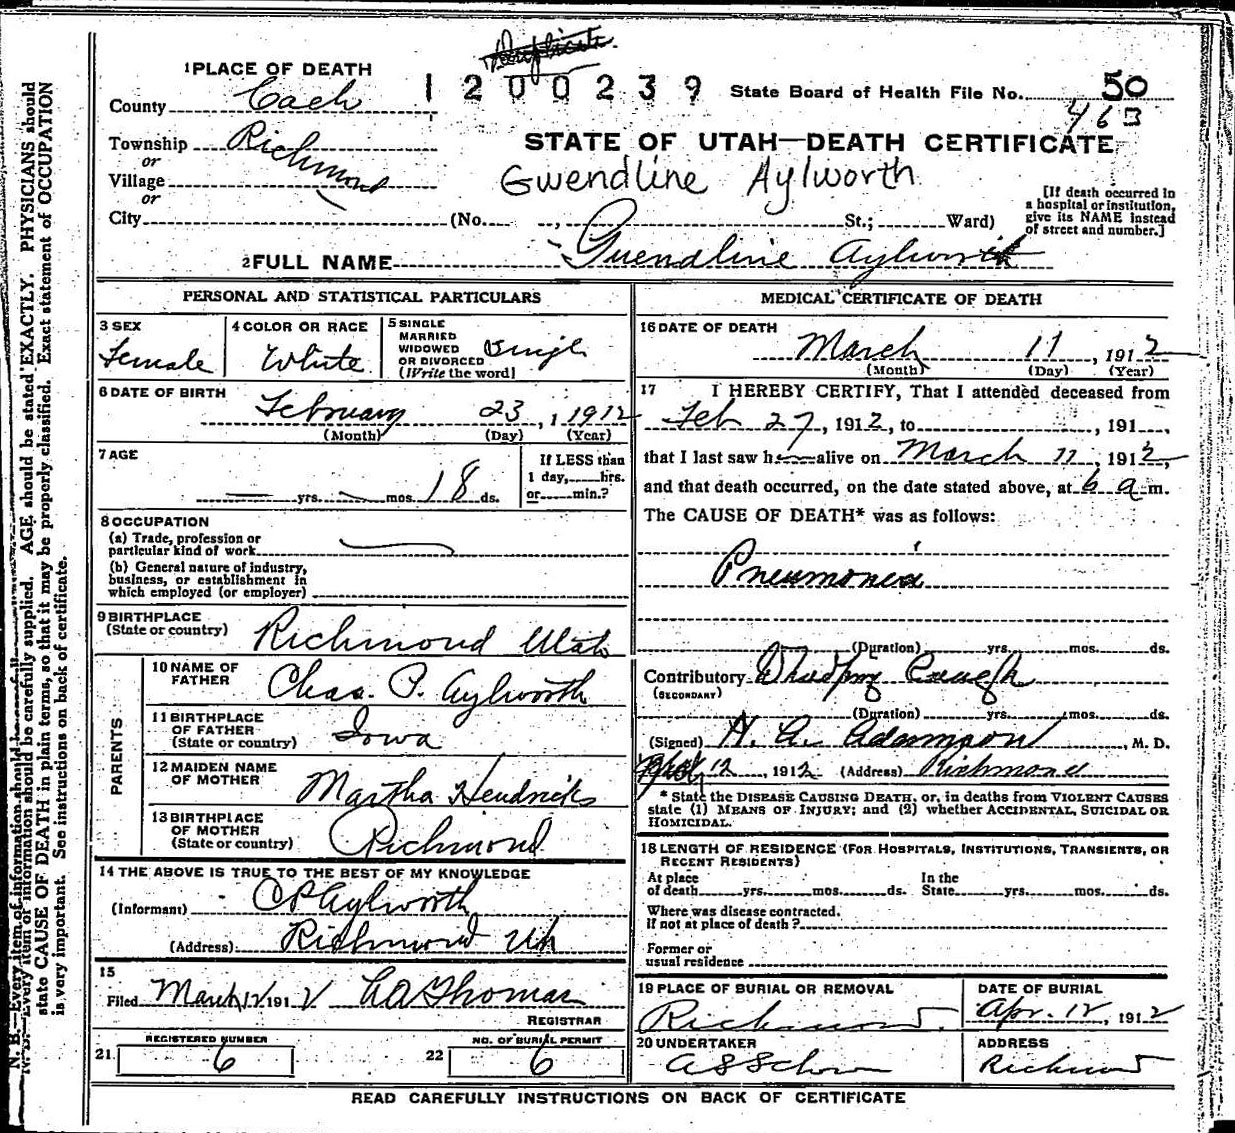 Duplicate
1 PLACE OF DEATH
1200239 State Board of Health File No. 50
County Cach
463
Township Richmond
STATE OF UTAH—DEATH CERTIFICATE
or
Village
Gwendline Aylworth
or
City (No. , St.; Ward)
[If death occurred in a hospital or institution, give its NAME instead of street and number.]
2 FULL NAME Guendline Aylworth
PERSONAL AND STATISTICAL PARTICULARS
3 SEX
Female
4 COLOR OR RACE
White
5 SINGLE
MARRIED
WIDOWED
OR DIVORCED
(Write the word)
Single
6 DATE OF BIRTH
February 23, 1912
(Month) (Day) (Year)
7 AGE
yrs. mos. 18 ds.
If LESS than
1 day, hrs.
or min.?
8 OCCUPATION
(a) Trade, profession or
particular kind of work
(b) General nature of industry,
business, or establishment in
which employed (or employer)
9 BIRTHPLACE
(State or country) Richmond Utah
PARENTS
10 NAME OF
FATHER Chas. P. Aylworth
11 BIRTHPLACE
OF FATHER
(State or country) Iowa
12 MAIDEN NAME
OF MOTHER Martha Hendricks
13 BIRTHPLACE
OF MOTHER
(State or country) Richmond
14 THE ABOVE IS TRUE TO THE BEST OF MY KNOWLEDGE
(Informant) C P Aylworth
(Address) Richmond Uh
15
Filed March 12 1912 L A Thomas
REGISTRAR
REGISTERED NUMBER
21 6
NO. OF BURIAL PERMIT
22 6
MEDICAL CERTIFICATE OF DEATH
16 DATE OF DEATH
March 11, 1912
(Month) (Day) (Year)
17 I HEREBY CERTIFY, That I attended deceased from
Feb 27, 1912, to , 191 ,
that I last saw h alive on March 11, 1912,
and that death occurred, on the date stated above, at 6 a m.
The CAUSE OF DEATH* was as follows:
Pneumonea
(Duration) yrs. mos. ds.
Contributory Whooping Cough
(SECONDARY)
(Duration) yrs. mos. ds.
(Signed) H. A. Adamson, M. D.
12, 1912 (Address) Richmond
* State the DISEASE CAUSING DEATH, or, in deaths from VIOLENT CAUSES
state (1) MEANS OF INJURY; and (2) whether ACCIDENTAL, SUICIDAL OR
HOMICIDAL.
18 LENGTH OF RESIDENCE (FOR HOSPITALS, INSTITUTIONS, TRANSIENTS, OR
RECENT RESIDENTS)
At place
of death yrs. mos. ds.
In the
State yrs. mos. ds.
Where was disease contracted.
if not at place of death?
Former or
usual residence
19 PLACE OF BURIAL OR REMOVAL
Richmond.
DATE OF BURIAL
Apr. 12, 1912
20 UNDERTAKER
ADDRESS
Richmond
READ CAREFULLY INSTRUCTIONS ON BACK OF CERTIFICATE
N. B.—Every item of information should be carefully supplied. AGE should be stated EXACTLY. PHYSICIANS should
state CAUSE OF DEATH in plain terms, so that it may be properly classified. Exact statement of OCCUPATION
is very important. See instructions on back of certificate.